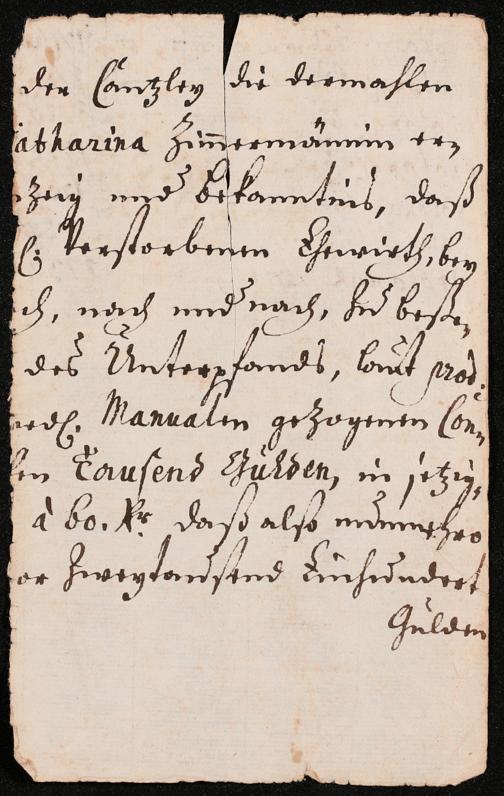 der Cantzley die dermahlen
atharina Zimmermännin er-
zeig und bekanntnis, daß
Verstorbenen Ehewirth, bey
ch, nach und nach, zu beße-
des Unterpfands, laut prod.
Manualen gezogenen Con-
en Tausend Gülden, in jetzig-
à 60. Kr. daß also nunmehro
or Zweytausend Einhundert
Gülden